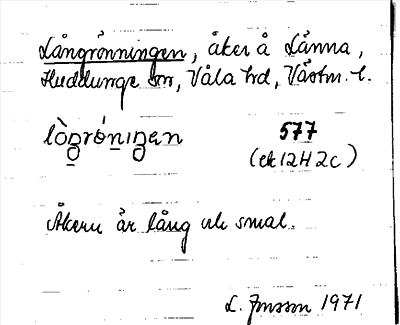 Långrönningen, åker å Länna,
Huddunge sn, Våla hd, Västm. l.
lòŋrönıŋen 577
(ek 12H 2c)
Åkern är lång och smal.
L. Jonsson 1971